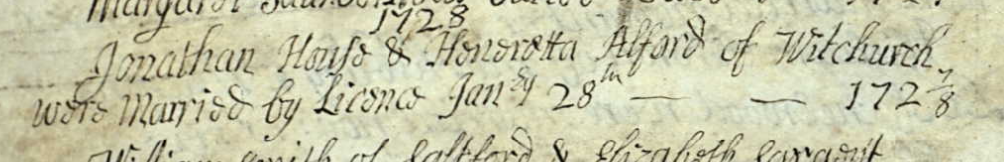 Margaret
1728
Jonathan House & Henerotta Alford of Witchurch
were Married by Licence Jan:ry 28th — — 172 7/8
William Smith of Saltford & Elizabeth Sargent